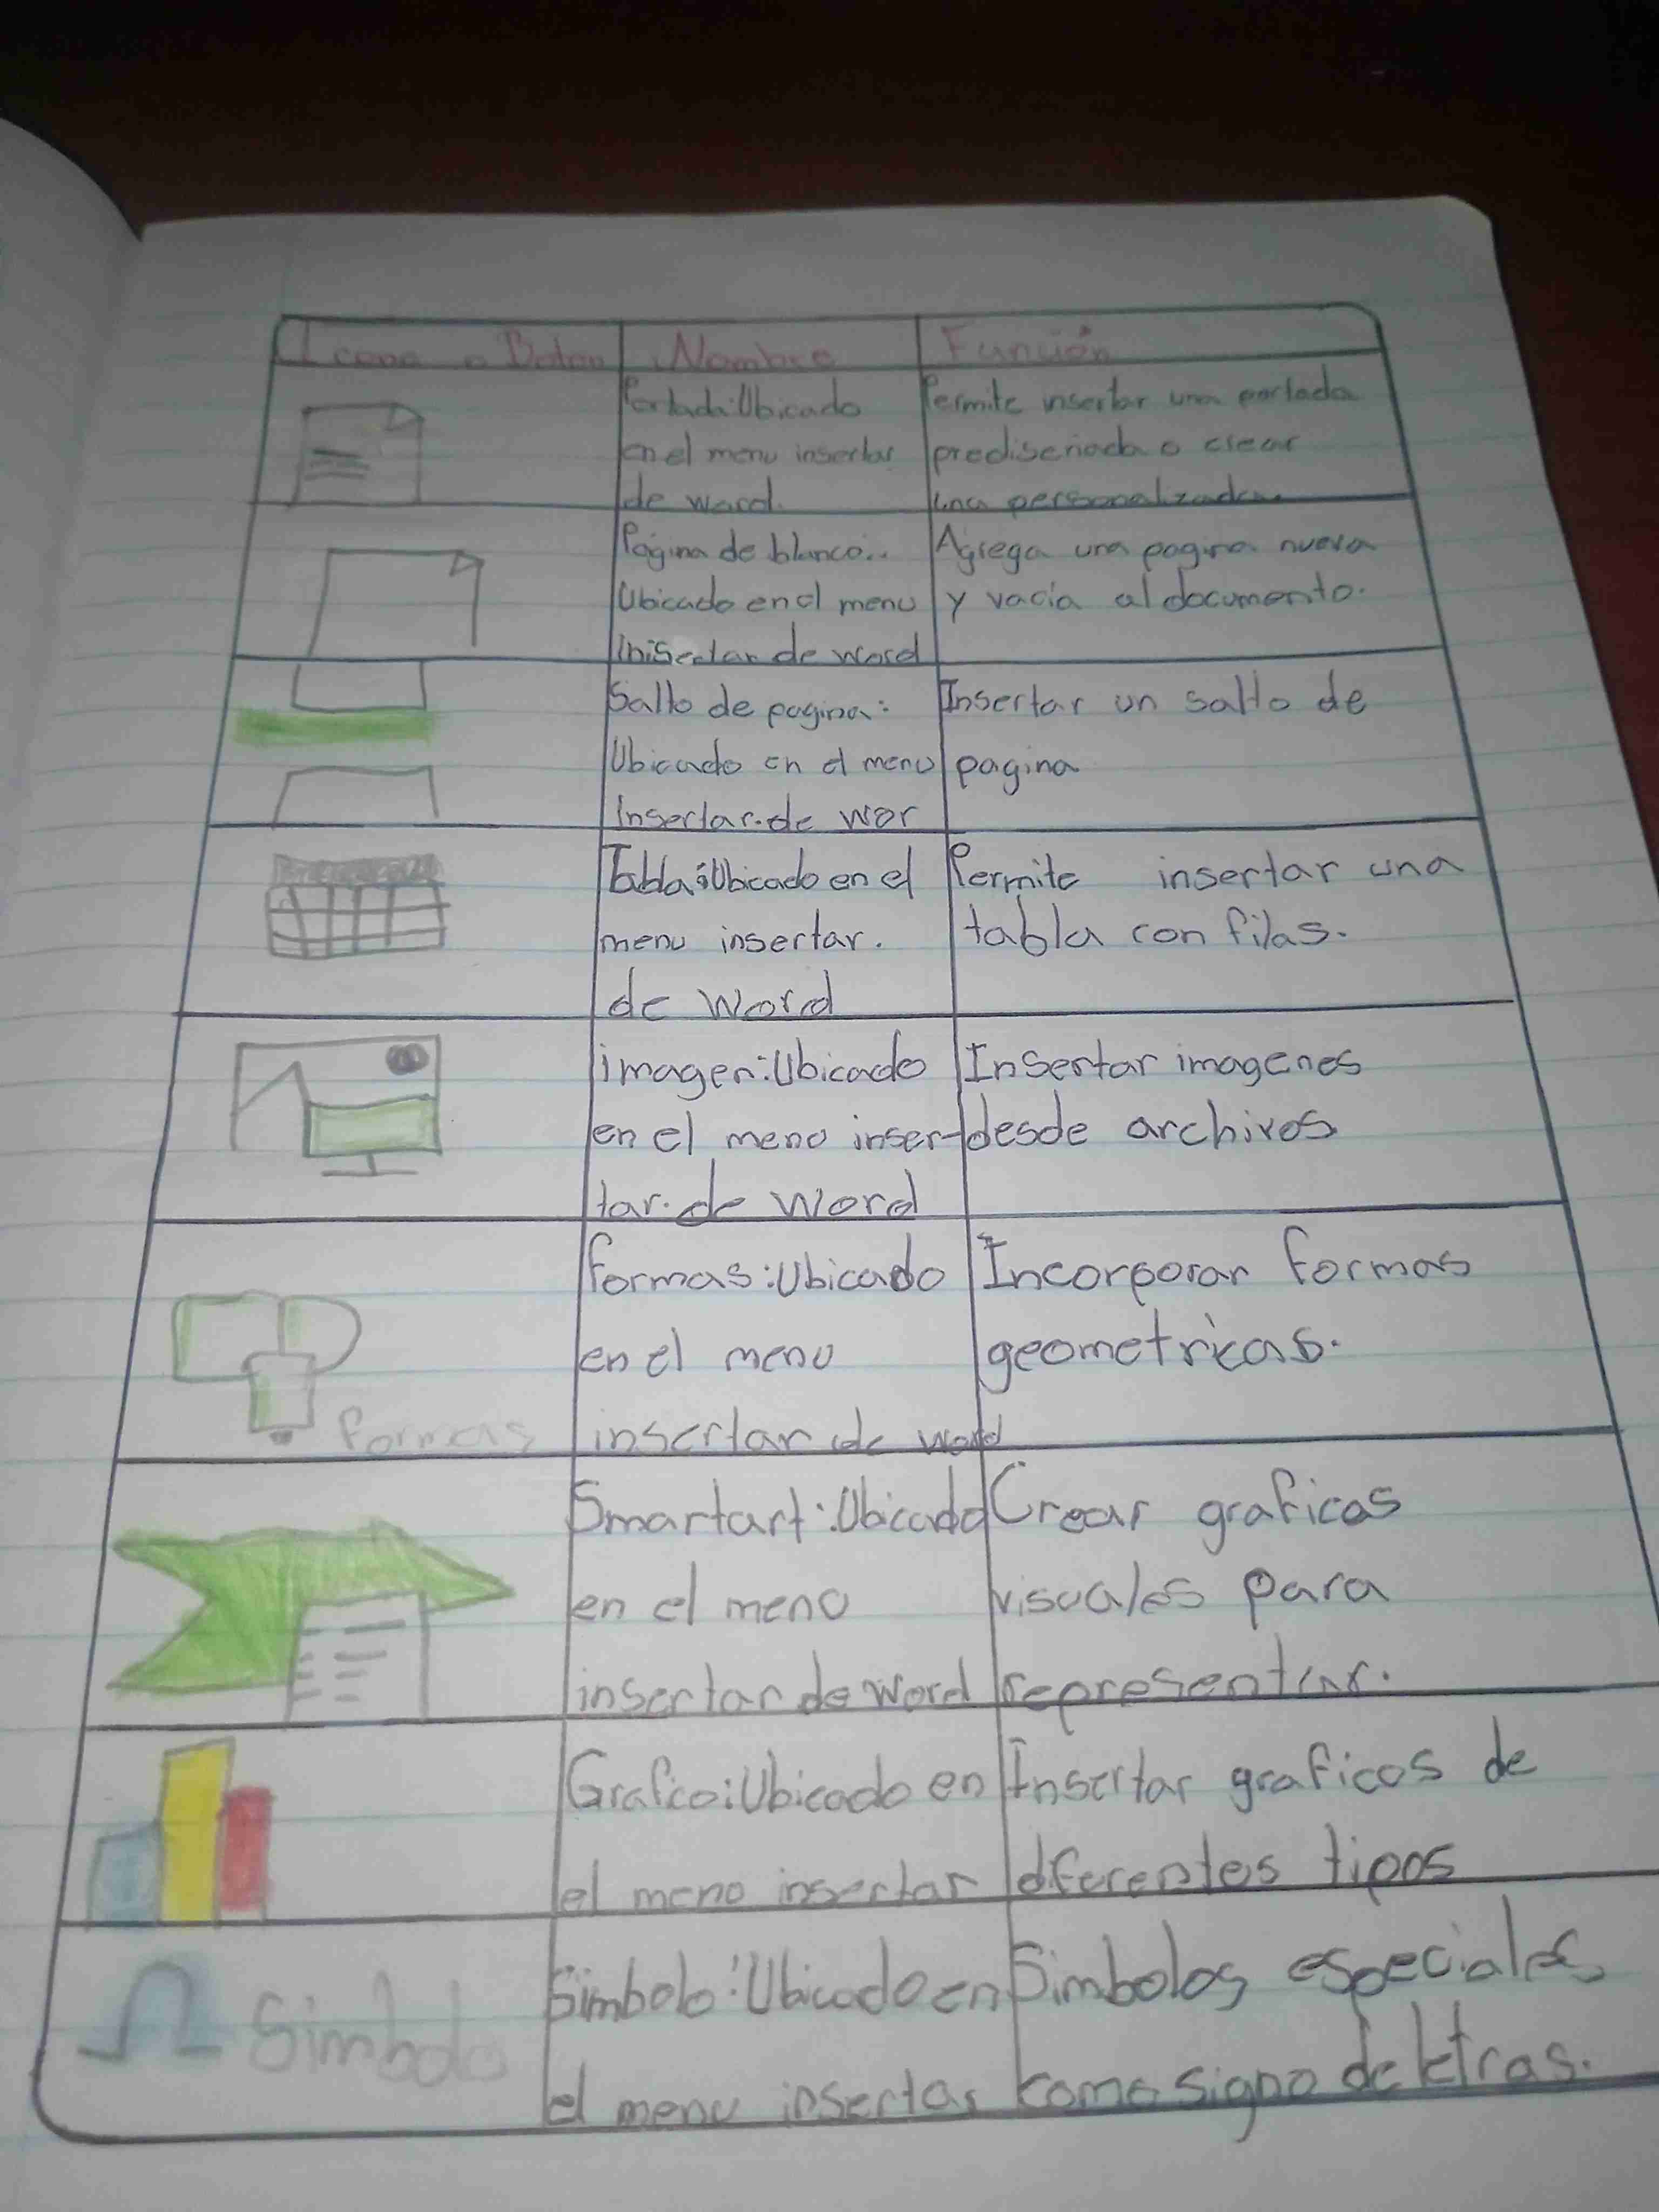 Icono o Boton Nombre Función
Portada: Ubicado
en el menu insertar
de word.
Permite insertar una portada
prediseñada o crear
una personalizada.
Página de blanco..
Ubicado en el menu
Inisertar de word
Agrega una pagina nueva
y vacía al documento.
Salto de pagina:
Ubicado en el menu
Insertar.de wor
Insertar un salto de
pagina
Tabla: Ubicado en el
menu insertar.
de Word
Permite insertar una
tabla con filas.
imagen: Ubicado
en el menu inser-
tar. de Word
Insertar imagenes
desde archivos
formas
formas: Ubicado
en el menu
insertar de word
Incorporar formas
geometricas.
Smartart: Ubicado
en el menu
insertar de word
Crear graficas
visuales para
representar.
Grafico: Ubicado en
el menu insertar
Insertar graficos de
diferentes tipos
Simbolo
Simbolo: Ubicado en
el menu insertar
Simbolos especiales
como signo de letras.